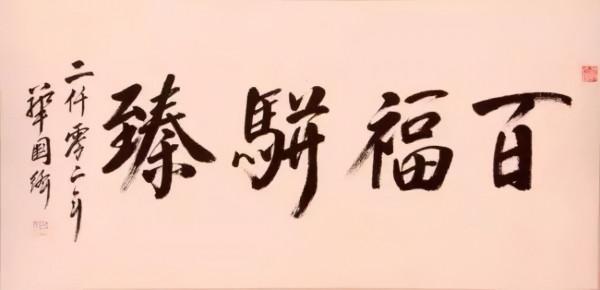 百福駢臻
二仟零二年
華国锋